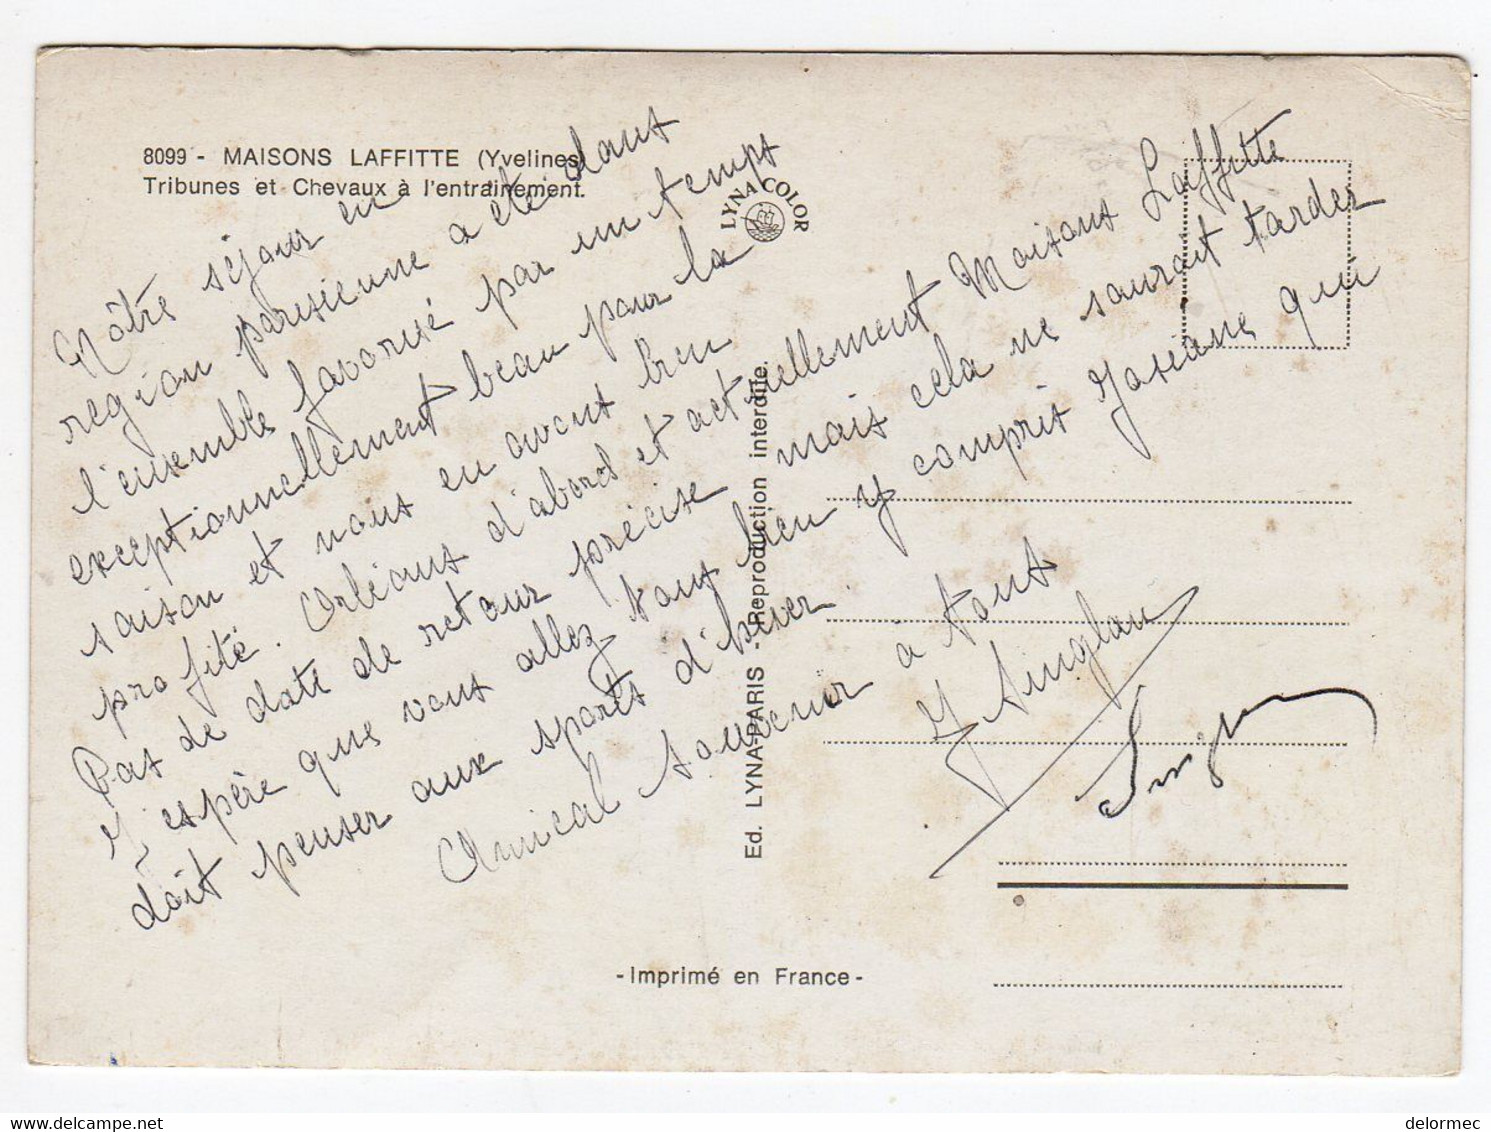 8099 - MAISONS LAFFITTE (Yvelines)
Tribunes et Chevaux à l'entrainement.
LYNA COLOR
Nôtre séjour en
region parisienne a été dans
l'ensemble favorisé par un temps
exceptionnellement beau pour la
saison et nous en avons bien
profité. Orléans d'abord et actuellement Maisons Laffitte
Pas de date de retour précise mais cela ne saurait tarder
J'espère que vous allez tous bien y compris Josiane qui
doit penser aux sports d'hiver.
Amical souvenir à tous
Ed. LYNA-PARIS - Reproduction interdite.
- Imprimé en France -
delcampe.net
delormec